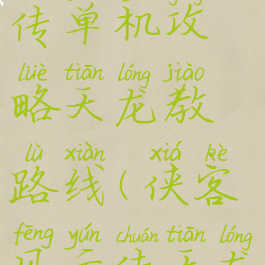 传单机攻
lüè tiān lóng jiào
略天龙教
lù xiàn xiá kè
路线(侠客
fēng yún chuán tiān lóng